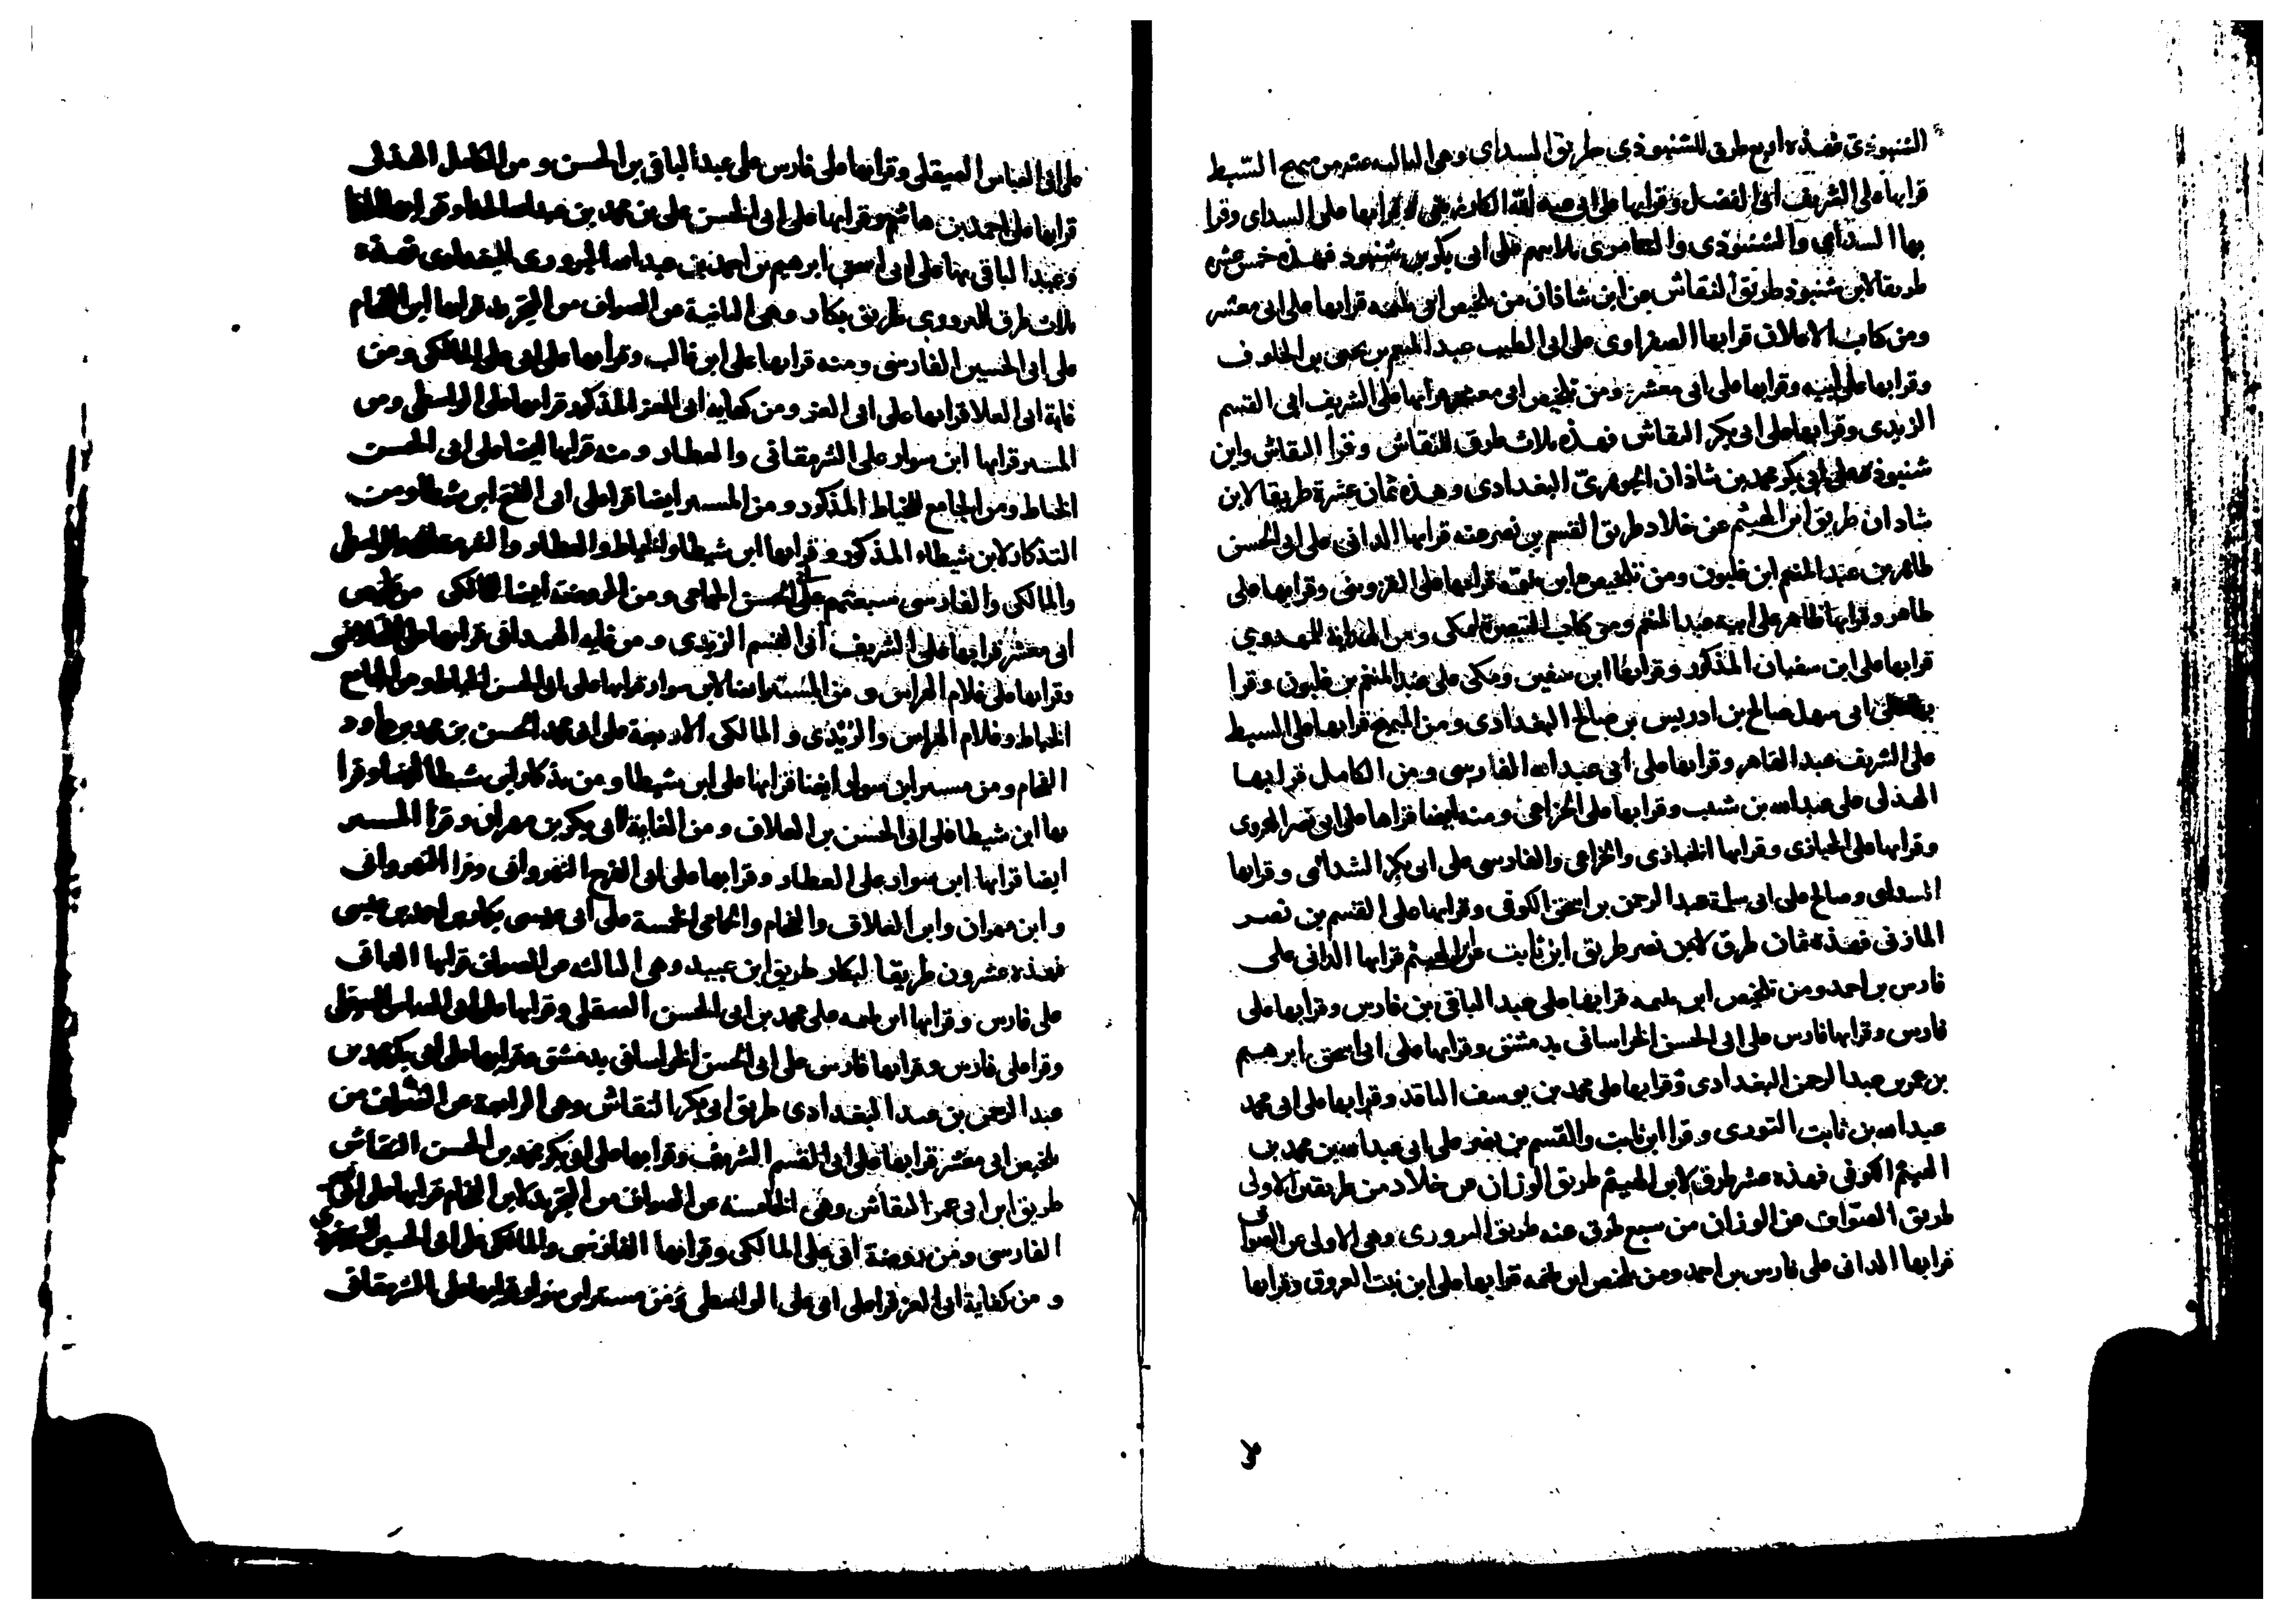 الشنبوذى فهذه اربع طرق للشنبوذى طريق السداى وهى الثالثة عنه من مبهج السبط
قرا بها على الشريف ابى الفضل وقرا بها على ابى عبد الله الكارزينى وقرا بها على السداى وقرا
بها السداى والشنبوذى والمعامرى ثلاثهم على ابى بكر بن شنبوذ فهذه خمس عشره
طريقا لابن شنبوذ طريق النقاش عن ابن شاذان من تلخيص ابى قرا بها على ابى معشر
ومن كتاب الاعلان قرا بها الصفراوى على ابى الطيب عبد المنعم بن يحيى بن الخلوف
وقرا بها على ابيه وقرا بها على ابى معشر ومن تلخيص ابى معشر قرا بها على الشريف ابى القسم
الزيدى وقرا بها على ابى بكر النقاش فهذه ثلاث طرق للنقاش وقرا النقاش وابن
شنبوذ على ابى بكر محمد بن شاذان الجوهرىّ البغدادى وهذه ثمان عشرة طريقا لابن
شاذان طريق ابن الهيثم عن خلاد طريق القسم بن نصر عنه قرا بها الدانى على ابى الحسن
طاهر بن عبد المنعم ابن غلبون ومن تلخيص ابن بليمه قرا بها على القزوينى وقرا بها على
طاهر وقرا بها طاهر على ابيه عبد المنعم ومن كتاب التبصرة لمكى ومن الهداية للمهدوى
قرا بها على ابن سفيان المذكور وقرا بها ابن سفين ومكى على عبد المنعم بن غلبون وقرا
بها على ابى سهل صالح بن ادريس بن صالح البغدادى ومن المبهج قرا بها على السبط
على الشريف عبد القاهر وقرا بها على ابى عبد الله الفارسى ومن الكامل قرا بها
الهذلى على عبد الله بن شبيب وقرا بها على الخزاعى ومنه ايضا قرا بها على ابى نصر الهروى
وقرا بها على الخبازى وقرا بها الخبازى والخزاعى والفارسى على ابى بكر الشدائى وقرا بها
السداى وصالح على ابى سلمة عبد الرحمن بن اسحق الكوفى وقرا بها على القسم بن نصر
المازنى فهذه ثمان طرق لابن نصر طريق ابن ثابت عن ابن الهيثم قرا بها الدانى على
فارس بن احمد ومن تلخيص ابن بليمه قرا بها على عبد الباقى بن فارس وقرا بها على
فارس وقرا بها فارس على ابى الحسن الخراسانى بدمشق وقرا بها على ابى اسحق ابرهيم
بن عمر بن عبد الرحمن البغدادى وقرا بها على محمد بن يوسف الناقد وقرا بها على ابى محمد
عبد الله بن ثابت التوزى وقرا ابن ثابت والقسم بن نصر على ابى عبد الله بن محمد بن
الهيثم الكوفى فهذه عشر طرق لابن الهيثم طريق الوزان عن خلاد من طريقين الاولى
طريق الصوّاف عن الوزان من سبع طرق عنه طريق البزورى وهى الاولى عن الصواف
قرا بها الدانى على فارس بن احمد ومن تلخيص ابن بليمه قرا بها على ابن نبت العروق وقرا بها
لا
على ابى العباس الصيقلى وقرا بها على فارس على عبد الباقى بن الحسن ومن الكامل الهذلى
قرا بها على احمد بن هاشم وقرا بها على ابى الحسن على بن محمد بن عبد الله
وعبد الباقى بها على ابى اسحق ابرهيم بن احمد بن عبد الله البزورى البغدادى فهذه
ثلاث طرق للبزورى طريق بكار وهى الثانية عن الصواف من التجريد قرا بها ابن الفحام
على ابى الحسين الفارسى ومنه قرا بها على ابن غالب وقرا بها على ابى على المالكى ومن
غاية ابى العلا قرا بها على ابى العز ومن كفاية ابى العز المذكور قرا بها على الواسطى ومن
المستنير قرا بها ابن سوار على الشرمقانى والعطار ومنه قرا بها ايضا على ابى الحسن
الخياط ومن الجامع للخياط المذكور ومن المستنير ايضا قرا على ابى الفتح ابن شيطا ومن
التذكار لابن شيطاء المذكور وقرا بها ابن شيطا والخياط والعطار والشرمقانى والواسطى
والمالكى والفارسى سبعتهم على ابى الحسن الحمامى ومن الروضة ايضا للمالكى من تلخيص
ابى معشر قرا بها على الشريف ابى القسم الزيدى ومن غاية الهمدانى قرا بها على القلانسى
وقرا بها على غلام الهراس ومن المستنير ايضا لابن سوار قرا بها على ابى الحسن الخياط ومن الجامع
الخياط وغلام الهراس والزيدى والمالكى الاربعة على ابى محمد الحسن بن محمد بن داود
الفحام ومن مستنير ابن سوار ايضا قرا بها على ابن شيطا ومن تذكار ابن شيطا ايضا وقرا
بها ابن شيطا على ابى الحسن بن العلاف ومن الغاية لابى بكر بن مهران وقرا المستنير
ايضا قرا بها ابن سوار على العطار وقرا بها على ابى الفرج النهروانى وقرا النهروانى
وابن مهران وابن العلاف والفحام والحمامى الخمسة على ابى عيسى بكار بن احمد بن عيسى
فهذه عشرون طريقا لبكار طريق ابن عبيد وهى الثالثة عن الصواف قرا بها الدانى
على فارس وقرا بها ابن بليمه على محمد بن ابى الحسن الصقلى وقرا بها على ابى العباس الصقلى
وقرا على فارس وقرا بها فارس على ابى الحسن الخراسانى بدمشق وقرا بها على ابى بكر محمد بن
عبد الرحمن بن عبيد البغدادى طريق ابى بكر النقاش وهى الرابعة عن الصواف من
تلخيص ابى معشر قرا بها على ابى القسم الشريف وقرا بها على ابى بكر محمد بن الحسن النقاش
طريق ابن ابى عمر النقاش وهى الخامسة عن الصواف من التجريد لابن الفحام قرا بها على ابى الحسين
الفارسى ومن روضة ابى على المالكى وقرا بها الفارسى والمالكى على ابى الحسين
ومن كفاية ابى العز قرا على ابى على الواسطى ومن مستنير ابن سوار قرا بها على الشرمقانى